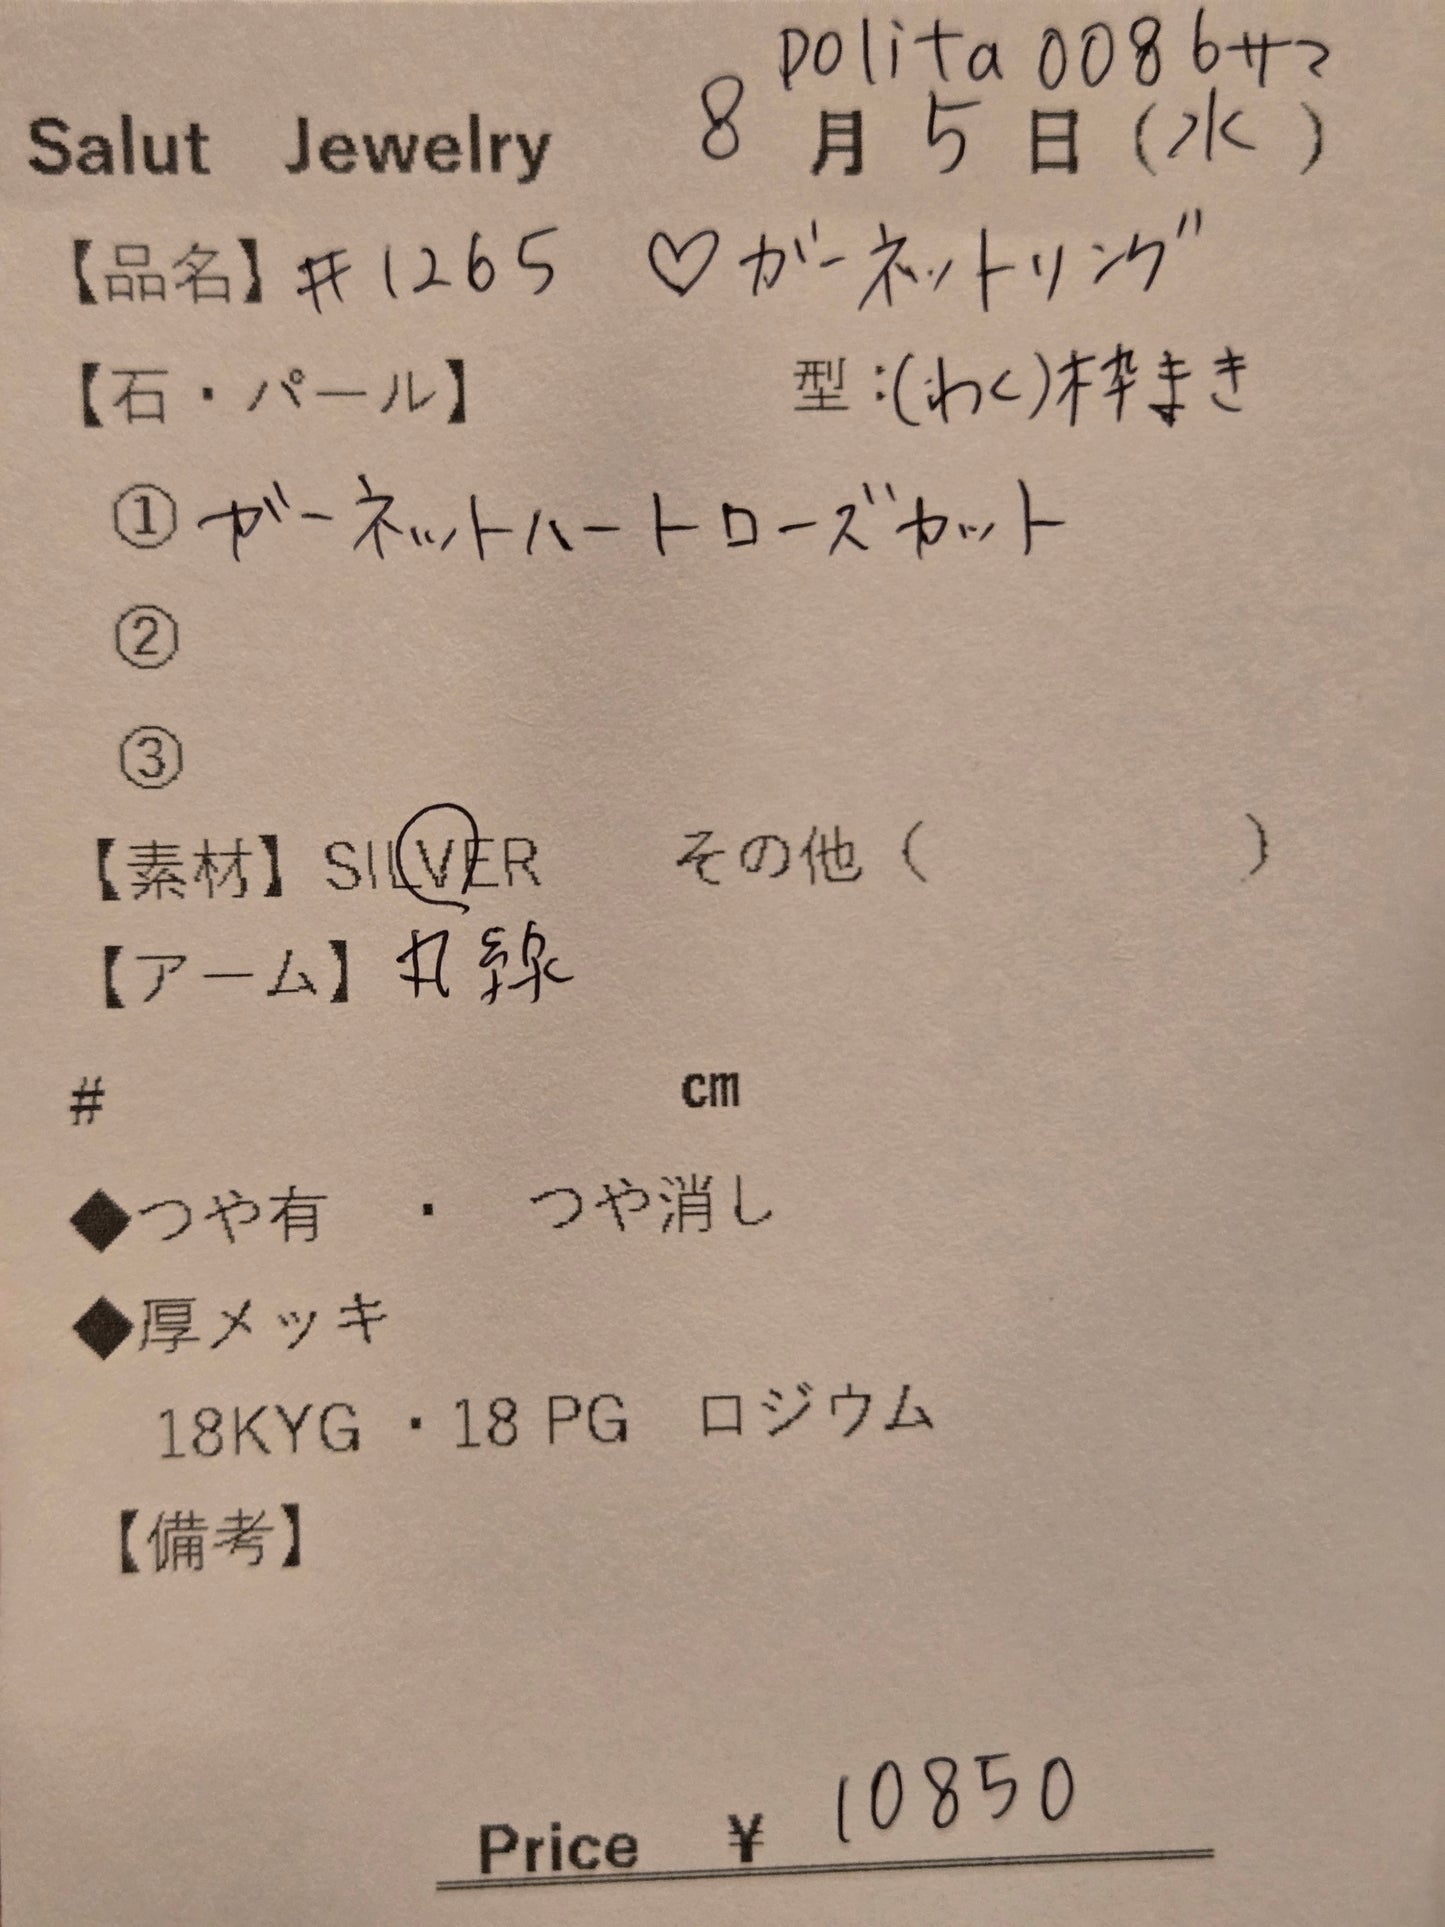 polita 0086サマ
Salut Jewelry 8月5日(水)
【品名】#1265 ♡ガーネットリング
【石・パール】 型:(わく)枠まき
①ガーネットハートローズカット
②
③
【素材】SILVER その他( )
【アーム】丸線
# cm
◆つや有 ・ つや消し
◆厚メッキ
18KYG ・18 PG ロジウム
【備考】
Price ¥ 10850